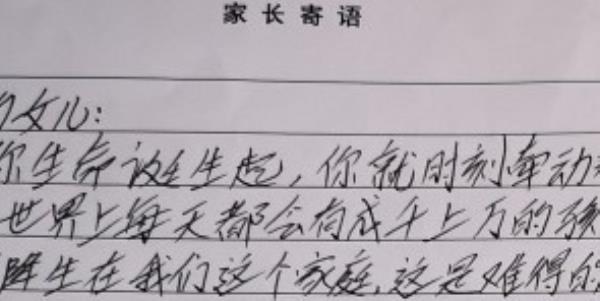 家长寄语
女儿：
你生命诞生起，你就时刻牵动
世界上每天都会有成千上万的孩
降生在我们这个家庭，这是难得的